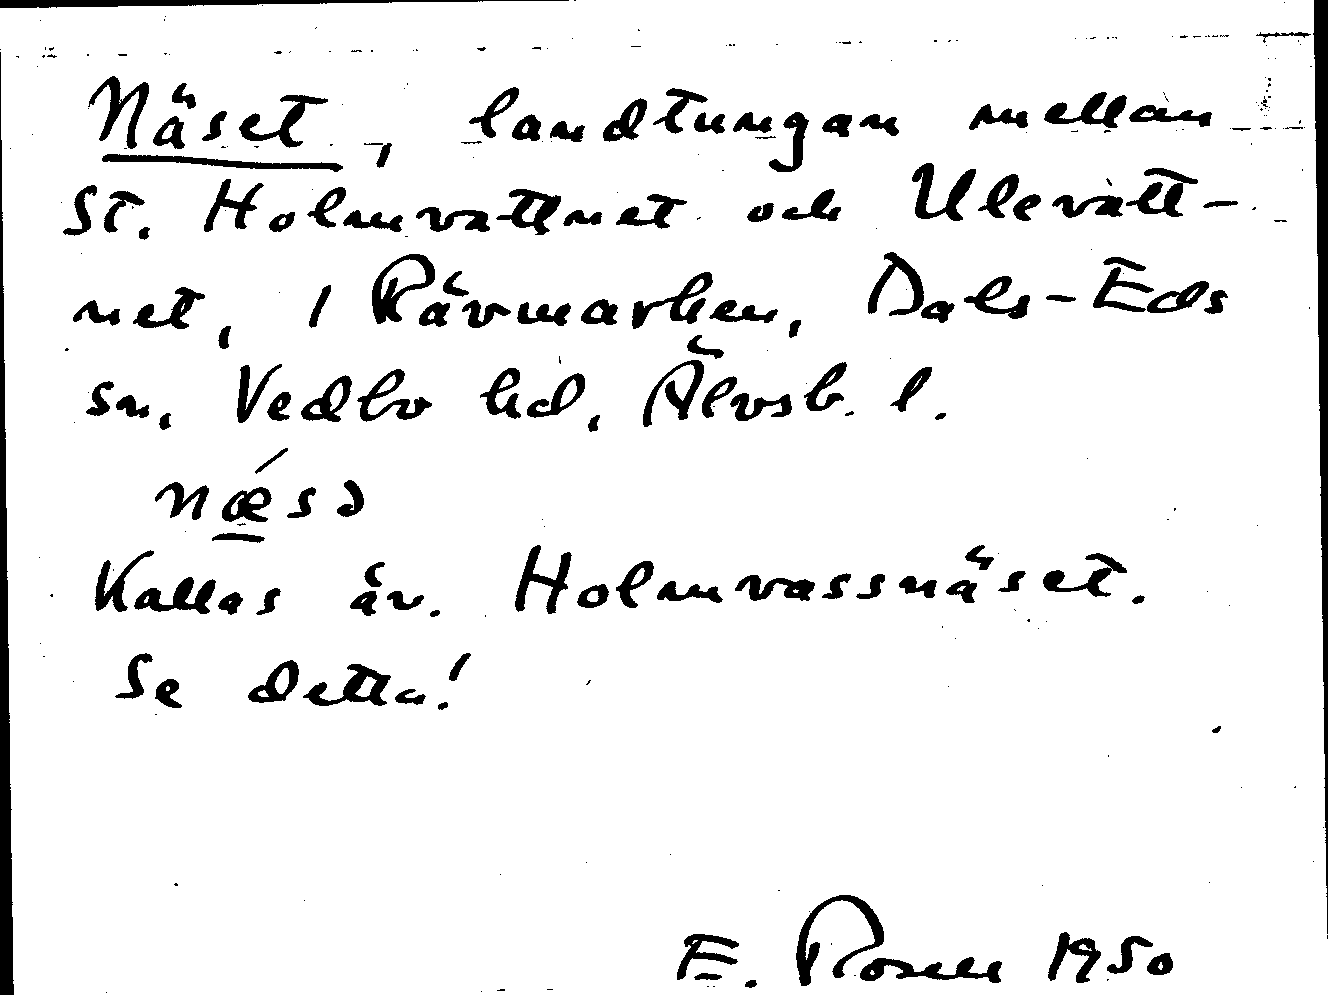 Näset, landtungan mellan
St. Holmvattnet och Ulevatt-
net, i Rävmarken, Dals-Eds
sn, Vedbo hd, Älvsb. l.
nǽsə
Kallas äv. Holmvassnäset.
Se detta!
E. Rosell 1950